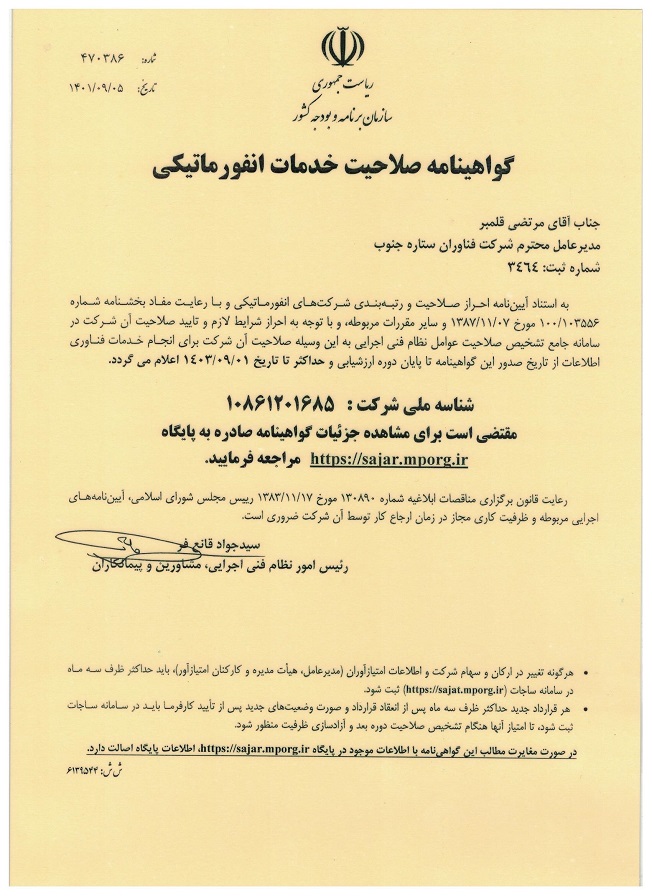 شماره: ۴۷۰۳۸۶
تاریخ: ۱۴۰۱/۰۹/۰۵
ریاست جمهوری
سازمان برنامه و بودجه کشور
گواهینامه صلاحیت خدمات انفورماتیکی
جناب آقای مرتضی قلمبر
مدیرعامل محترم شرکت فناوران ستاره جنوب
شماره ثبت: ٣٤٦٤
به استناد آیین‌نامه احراز صلاحیت و رتبه‌بندی شرکت‌های انفورماتیکی و با رعایت مفاد بخشنامه شماره
۱۰۰/۱۰۳۵۵۶ مورخ ۱۳۸۷/۱۱/۰۷ و سایر مقررات مربوطه، و با توجه به احراز شرایط لازم و تایید صلاحیت آن شرکت در
سامانه جامع تشخیص صلاحیت عوامل نظام فنی اجرایی به این وسیله صلاحیت آن شرکت برای انجام خدمات فناوری
اطلاعات از تاریخ صدور این گواهینامه تا پایان دوره ارزشیابی و حداکثر تا تاریخ ۱۴۰۳/۰۹/۰۱ اعلام می گردد.
شناسه ملی شرکت : ۱۰۸۶۱۲۰۱۶۸۵
مقتضی است برای مشاهده جزئیات گواهینامه صادره به پایگاه
https://sajar.mporg.ir مراجعه فرمایید.
رعایت قانون برگزاری مناقصات ابلاغیه شماره ۱۳۰۸۹۰ مورخ ۱۳۸۳/۱۱/۱۷ رییس مجلس شورای اسلامی، آیین‌نامه‌های
اجرایی مربوطه و ظرفیت کاری مجاز در زمان ارجاع کار توسط آن شرکت ضروری است.
سیدجواد قانع فر
رئیس امور نظام فنی اجرایی، مشاورین و پیمانکاران
• هرگونه تغییر در ارکان و سهام شرکت و اطلاعات امتیازآوران (مدیرعامل، هیأت مدیره و کارکنان امتیازآور)، باید حداکثر ظرف سه ماه
در سامانه ساجات (https://sajat.mporg.ir) ثبت شود.
• هر قرارداد جدید حداکثر ظرف سه ماه پس از انعقاد قرارداد و صورت وضعیت‌های جدید پس از تأیید کارفرما باید در سامانه ساجات
ثبت شود، تا امتیاز آنها هنگام تشخیص صلاحیت دوره بعد و آزادسازی ظرفیت منظور شود.
در صورت مغایرت مطالب این گواهی‌نامه با اطلاعات موجود در پایگاه https://sajar.mporg.ir، اطلاعات پایگاه اصالت دارد.
ش ش: ۶۱۳۹۵۴۴